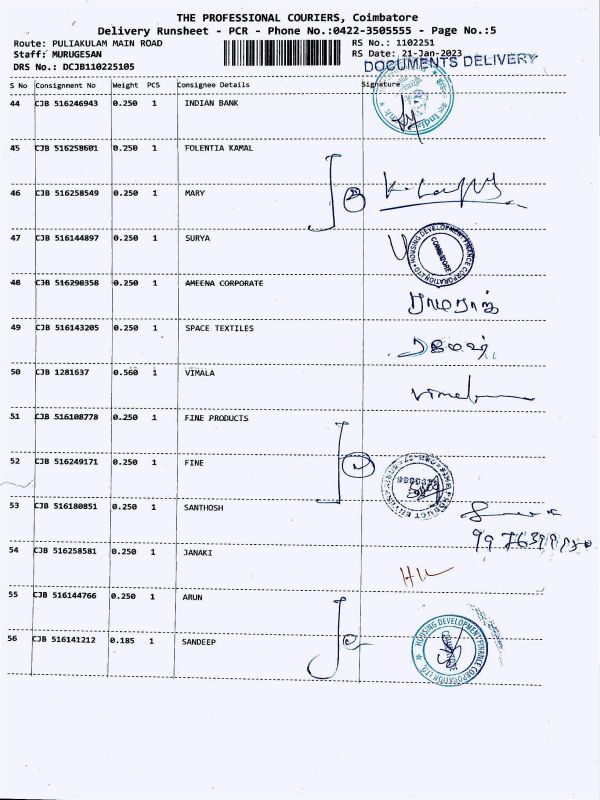 THE PROFESSIONAL COURIERS, Coimbatore
Delivery Runsheet - PCR - Phone No.:0422-3505555 - Page No.:5
Route: PULIAKULAM MAIN ROAD RS No.: 1102251
Staff: MURUGESAN RS Date: 21-Jan-2023
DRS No.: DCJB110225105 DOCUMENTS DELIVERY
S No Consignment No Weight PCS Consignee Details Signature
44 CJB 516246943 0.250 1 INDIAN BANK
45 CJB 516258601 0.250 1 FOLENTIA KAMAL
46 CJB 516258549 0.250 1 MARY
47 CJB 516144897 0.250 1 SURYA
HOUSING DEVELOPMENT FINANCE CORPORATION LTD
COIMBATORE
48 CJB 516298358 0.250 1 AMEENA CORPORATE
49 CJB 516143205 0.250 1 SPACE TEXTILES
50 CJB 1281637 0.560 1 VIMALA
Vimala
51 CJB 516108778 0.250 1 FINE PRODUCTS
52 CJB 516249171 0.250 1 FINE
53 CJB 516180851 0.250 1 SANTHOSH
54 CJB 516258581 0.250 1 JANAKI
55 CJB 516144766 0.250 1 ARUN
56 CJB 516141212 0.185 1 SANDEEP
HOUSING DEVELOPMENT FINANCE CORPORATION LTD